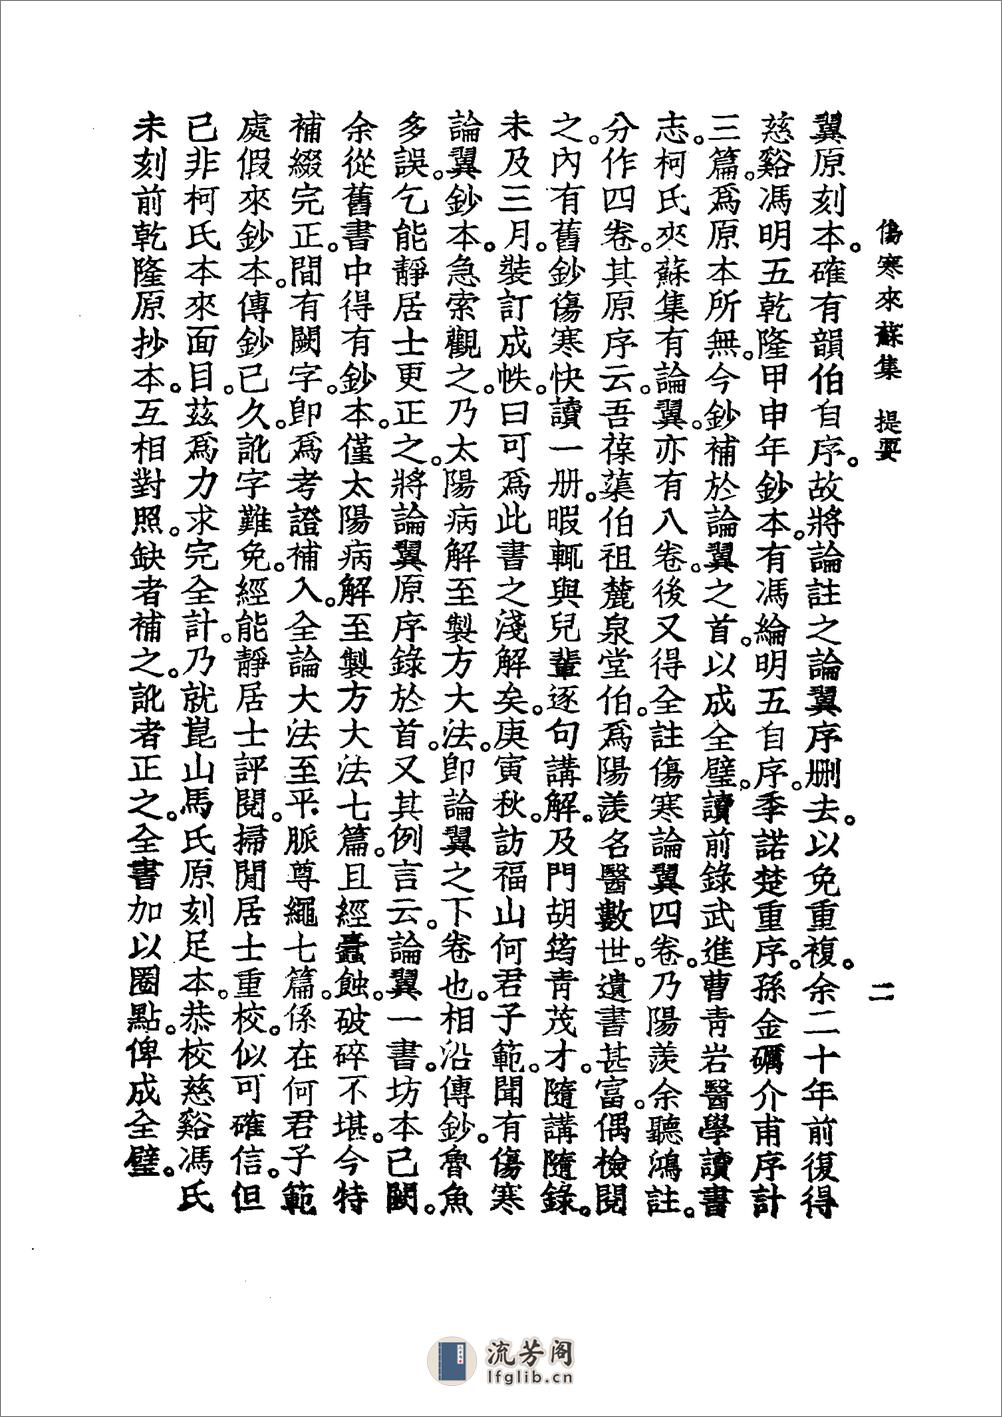 傷寒來蘇集 提要 二
翼原刻本。確有韻伯自序。故將論註之論翼序删去。以免重複。余二十年前復得
慈谿馮明五乾隆甲申年鈔本。有馮綸明五自序。季諾楚重序。孫金礪介甫序計
三篇。爲原本所無。今鈔補於論翼之首。以成全璧。讀前錄武進曹青岩醫學讀書
志。柯氏來蘇集有論翼。亦有八卷。後又得全註傷寒論翼四卷。乃陽羨余聽鴻註。
分作四卷。其原序云。吾葆蕖伯祖麓泉堂伯。爲陽羨名醫數世。遺書甚富。偶檢閱
之。內有舊鈔傷寒快讀一册。暇輒與兒輩逐句講解。及門胡筠青茂才。隨講隨錄。
未及三月。裝訂成帙。曰可爲此書之淺解矣。庚寅秋。訪福山何君子範。聞有傷寒
論翼鈔本。急索觀之。乃太陽病解至製方大法。卽論翼之下卷也。相沿傳鈔。魯魚
多誤。乞能靜居士更正之。將論翼原序錄於首。又其例言云。論翼一書。坊本已闕。
余從舊書中得有鈔本。僅太陽病解至製方大法七篇。且經蠹蝕。破碎不堪。今特
補綴完正。間有闕字。卽爲考證補入。全論大法至平脈尊繩七篇。係在何君子範
處假來鈔本。傳鈔已久。訛字難免。經能靜居士評閱。掃閒居士重校。似可確信。但
已非柯氏本來面目。茲爲力求完全計。乃就崑山馬氏原刻足本。恭校慈谿馮氏
未刻前乾隆原抄本。互相對照。缺者補之。訛者正之。全書加以圈點。俾成全璧。
流芳阁
lfglib.cn